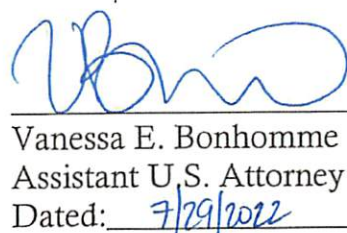 Vanessa E. Bonhomme
Assistant U.S. Attorney
Dated: 7/29/2022